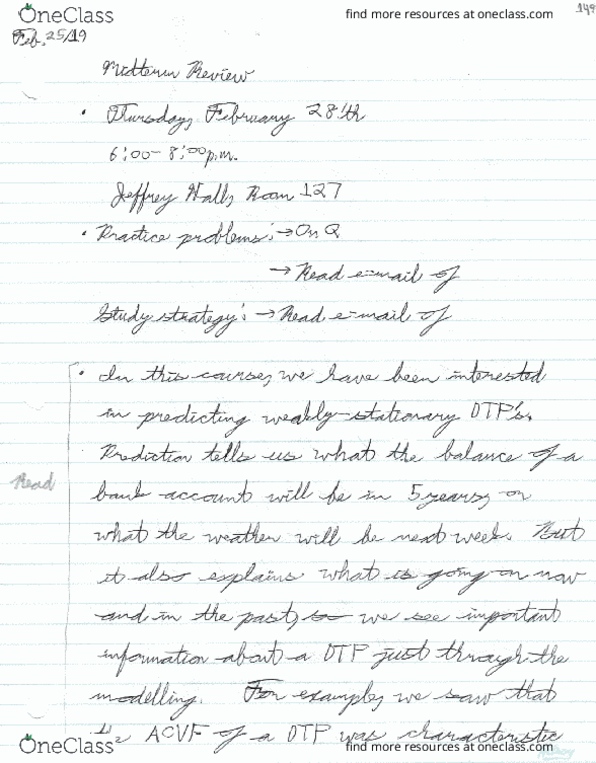 OneClass
find more resources at oneclass.com
149
Feb, 25/19
Midterm Review
• Thursday, February 28th
6:00-8:00p.m.
Jeffrey Hall, Room 127
• Practice problems: → On Q
→ Read e-mail of
Study strategy: → Read e-mail of
• In this course, we have been interested
in predicting weakly-stationary DTP's.
Prediction tells us what the balance of a
Read
bank account will be in 5 years, or
what the weather will be next week. But
it also explains what is going on now
and in the past, so we see important
information about a DTP just through the
modelling. For example, we saw that
ACVF of a DTP was characteristic
OneClass
find more resources at oneclass.com